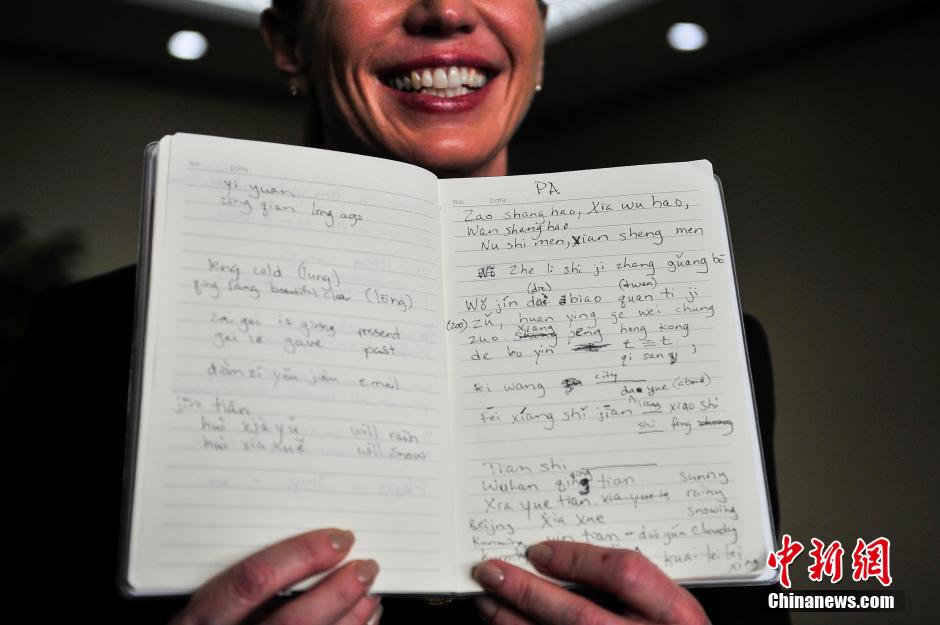 No: Date
yi yuan
cong qian long ago
leng cold (lung)
qing lang beautiful clear (lěng)
za gei is giving present
gei le gave past
diàn zǐ yóu jiàn email
jīn tiān
huì xjà yǔ will rain
huì xia xuě will snow
PA
No: Date:
Zao shang hao, Xia wu hao,
Wan shang hao
Nu shi men, xian sheng men
Zhe li shi ji zhang guǎng bō
(twen)
Wǒ jín dài biao quan ti ji
(zoo) zǔ, huan ying ge wei chung
xiang
zuo shang peng hong kong
de bo yin
qi sang ;
fei wang city
da yue (about)
Fēi xíang shí jiān liang xiao shi
shi fen zhong
Tian shi
qing
Wuhan qing tian. sunny
Xra yue tian. xia yue le rainy
snowing
Beijng Xia xue
Kunming yin tian - duō yún Cloudy
kuai le fei
xing
中新網
Chinanews.com